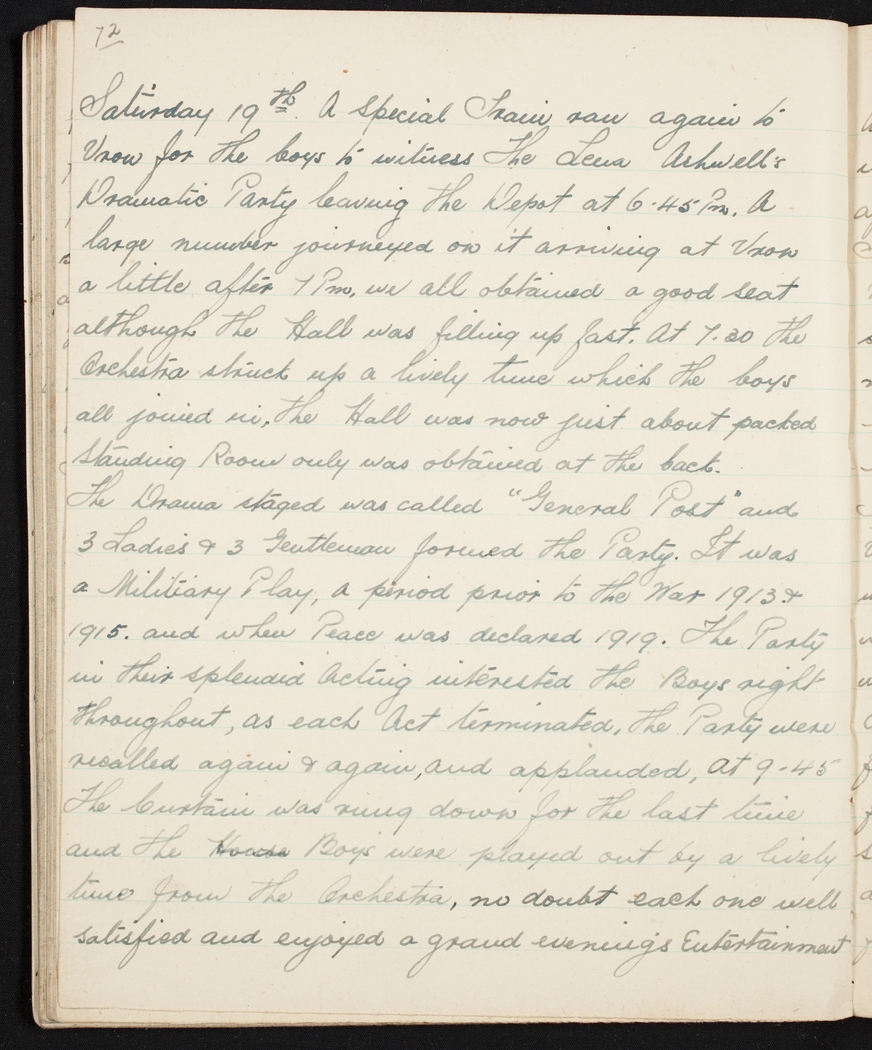 72
Saturday 19th. A special Train ran again to
Vron for the boys to witness The Lena Ashwell's
Dramatic Party leaving the Depot at 6-45 Pm. A
large number journeyed on it arriving at Vron
a little after 7 Pm, we all obtained a good seat
although the Hall was filling up fast. At 7.30 the
Orchestra struck up a lively tune which the boys
all joined in, the Hall was now just about packed
Standing Room only was obtained at the back.
The Drama staged was called "General Post" and
3 Ladies & 3 Gentleman formed the Party. It was
a Militiary Play, a period prior to the War 1913 &
1915. and when Peace was declared 1919. The Party
in their splendid Acting interested the Boys right
throughout, as each Act terminated, the Party were
recalled again & again, and applauded, At 9-45
The Curtain was rung down for the last time
and the House Boys were played out by a lively
tune from the Orchestra, no doubt each one well
satisfied and enjoyed a grand evening's Entertainment